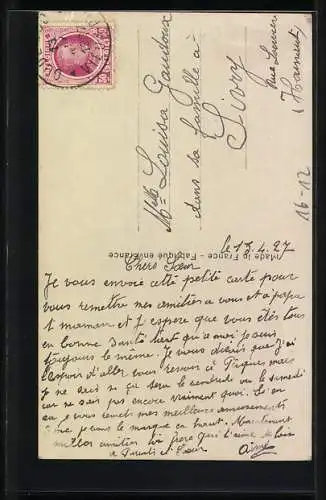 Melle Louisa Gaudoux
dans sa famille à
Sivry
(Hainaut)
16-12
Made in France - Fabrique en France
le 13.4.27
Chere Sœur
Je vous envoie cette petite carte pour
vous remettre mes amitiés a vous et a papa
et maman et j'espere que vous étes tous
en bonne santé tant qu'a moi je suis
toujours le même. Je vous dirais que j'ai
l'espoir d'aller vous revoir a Paques mais
je ne sais si ça sera le vendredi ou le samedi
car ne sais pas encore vraiment quoi.
je vous mes meilleurs
je vous le marque en haut.
amitiés frere qui t'aime de loin
a Sœur